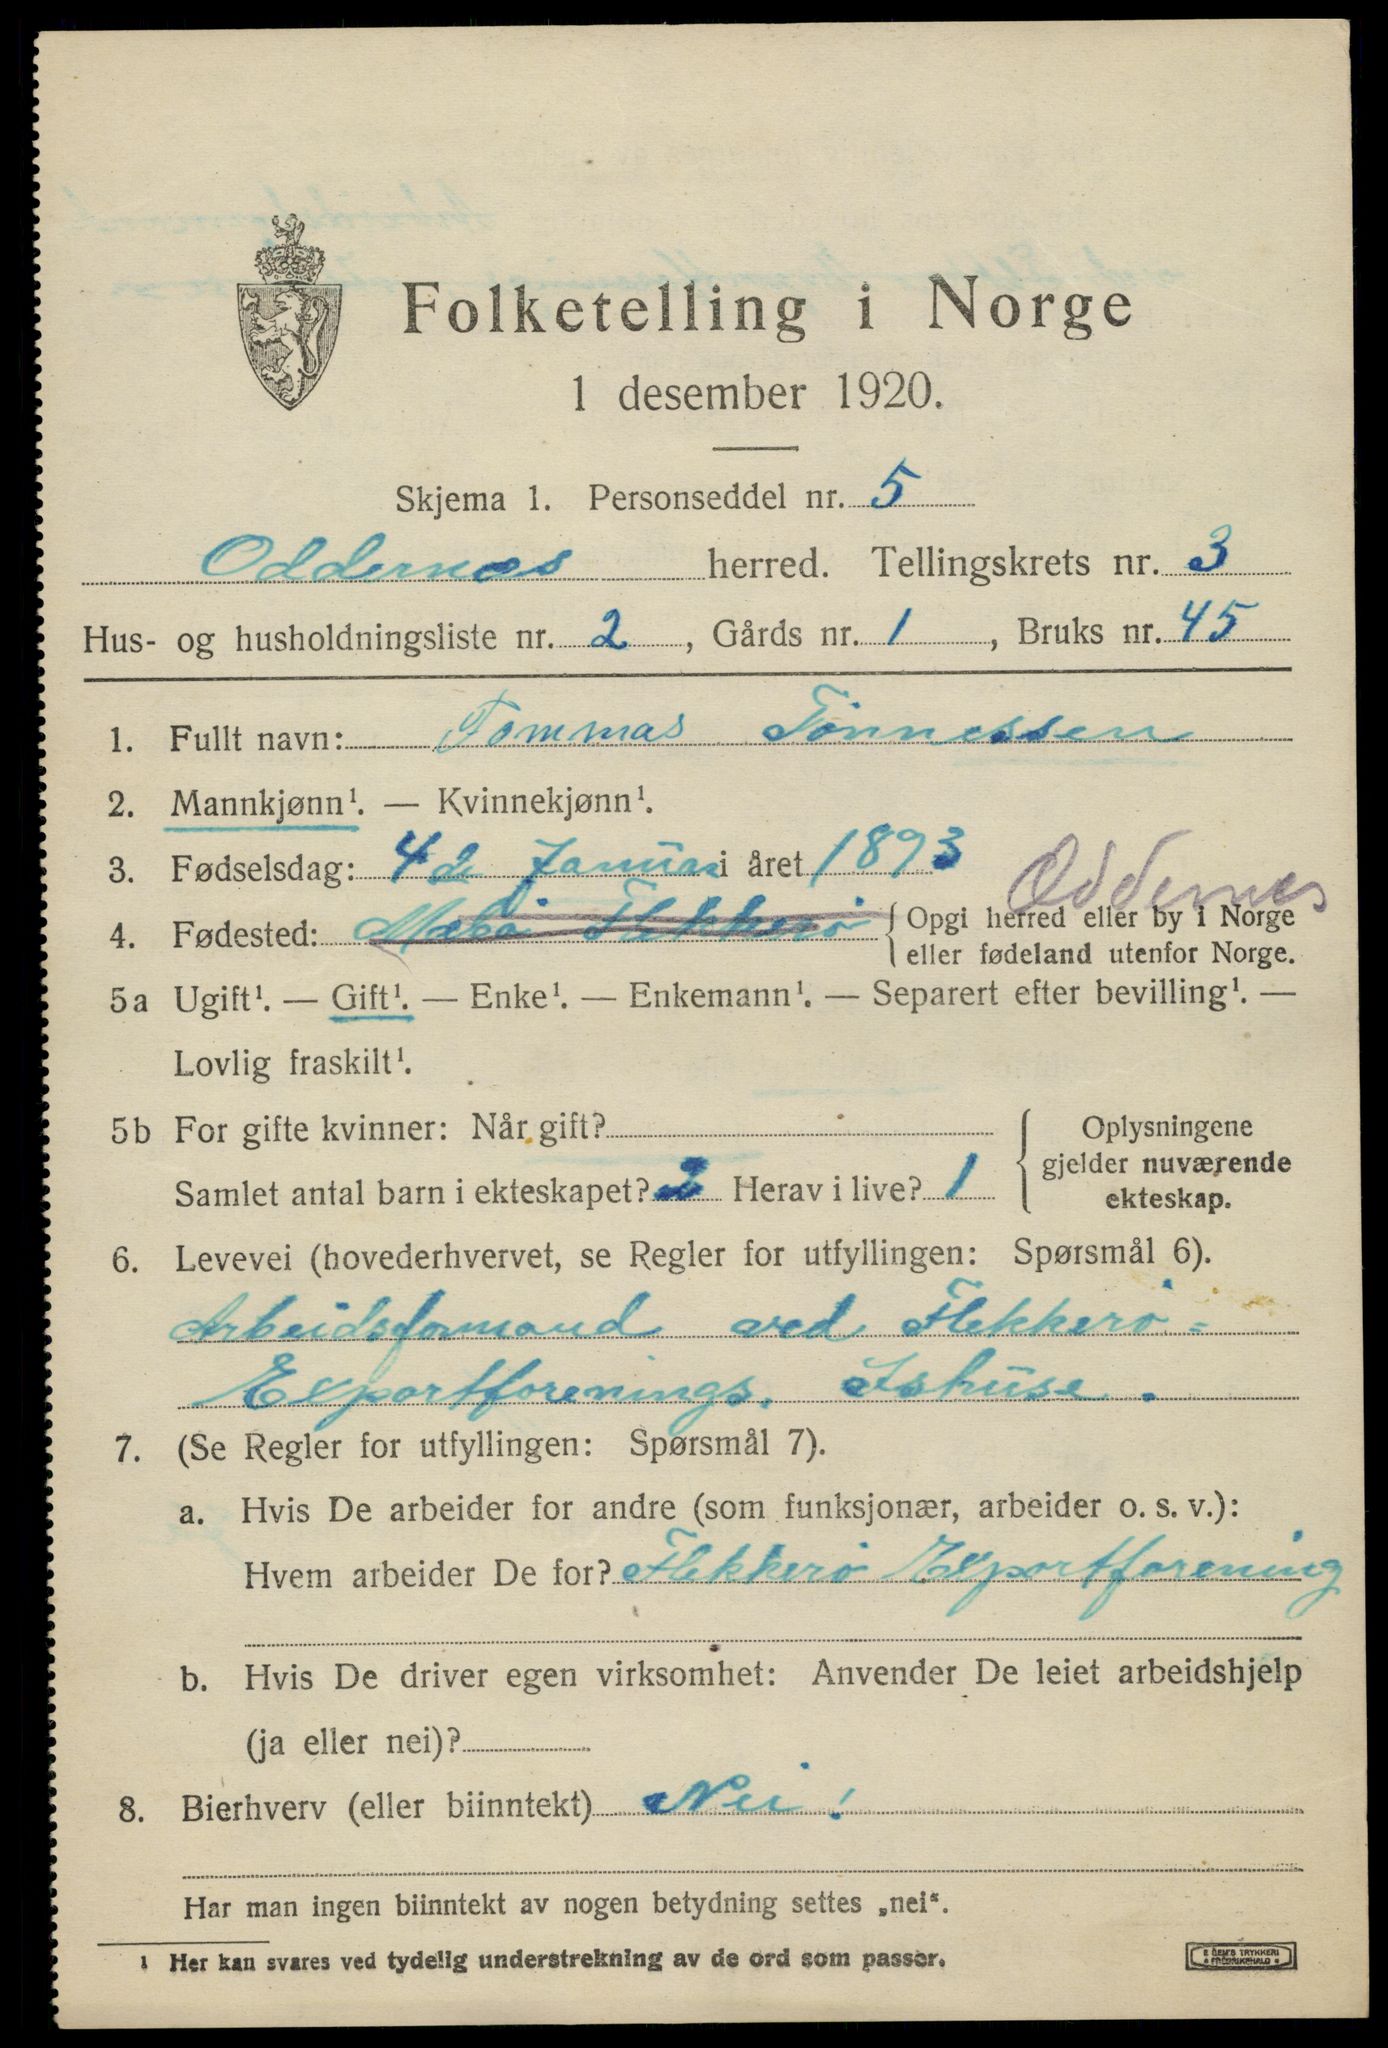 Folketelling i Norge
1 desember 1920.
Skjema 1. Personseddel nr. 5
Oddernes herred. Tellingskrets nr. 3
Hus- og husholdningsliste nr. 2, Gårds nr. 1, Bruks nr. 45
1. Fullt navn: Tommas Tönnessen
2. Mannkjønn¹. — Kvinnekjønn¹.
3. Fødselsdag: 4 de Januar i året 1893
Oddernes
4. Fødested: Mæbö Flekkerö { Opgi herred eller by i Norge
eller fødeland utenfor Norge.
5a Ugift¹. — Gift¹. — Enke¹. — Enkemann¹. — Separert efter bevilling¹. —
Lovlig fraskilt¹.
5b For gifte kvinner: Når gift?
Samlet antal barn i ekteskapet? 2 Herav i live? 1
{ Oplysningene
gjelder nuværende
ekteskap.
6. Levevei (hovederhvervet, se Regler for utfyllingen: Spørsmål 6).
Arbeidsformand ved Flekkerö-
Exportforenings. Ishuse.
7. (Se Regler for utfyllingen: Spørsmål 7).
a. Hvis De arbeider for andre (som funksjonær, arbeider o. s. v.):
Hvem arbeider De for? Flekkerö Exportforening
b. Hvis De driver egen virksomhet: Anvender De leiet arbeidshjelp
(ja eller nei)?
8. Bierhverv (eller biinntekt) Nei!
Har man ingen biinntekt av nogen betydning settes „nei“.
¹ Her kan svares ved tydelig understrekning av de ord som passer.
E. SEM'S TRYKKERI
FREDRIKSHALD